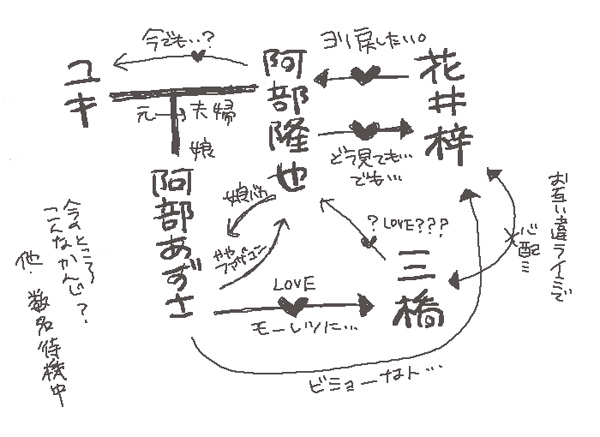 今でも…?
ヨリ戻したい。
ユキ
阿部隆也
花井梓
元→夫婦
娘
どう見ても…
でも…
阿部あずさ
娘バカ
ややファザコン
?LOVE???
お互い違うイミで
心配…
三橋
LOVE
モーレツに…
ビミョーなト…
今のところ
こんなかんじ?
他、数名待機中